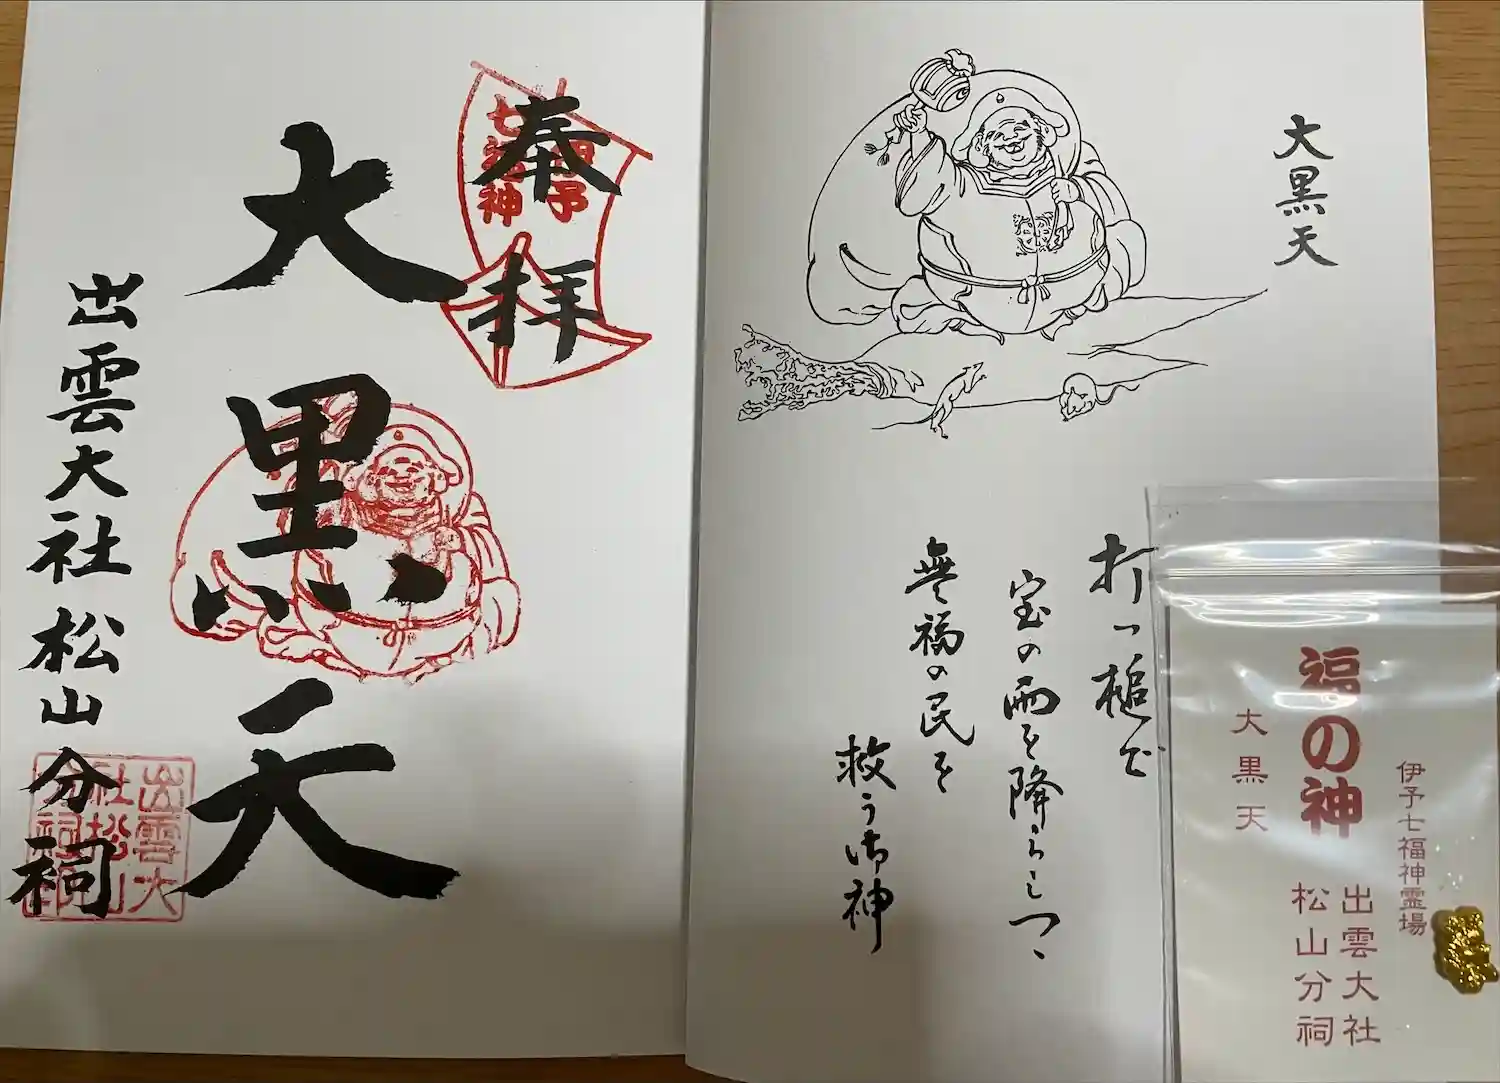 大黒天
打つ槌で
宝の雨を降らしつゝ
無福の民を
救う御神
奉拝
伊予
七福神
大黒天
出雲大社松山分祠
出雲大
社松山
分祠印
伊予七福神霊場
福の神
出雲大社
松山分祠
大黒天